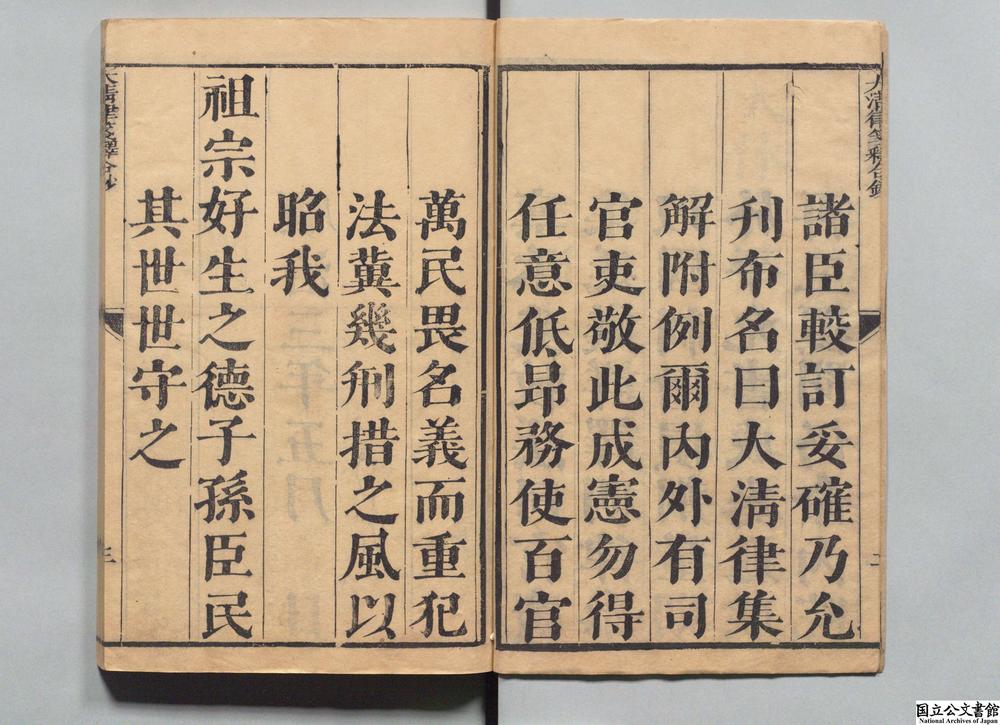 諸臣較訂妥確乃允
刊布名曰大淸律集
解附例爾內外有司
官吏敬此成憲勿得
任意低昻務使百官
萬民畏名義而重犯
法冀幾刑措之風以
昭我
祖宗好生之德子孫臣民
其世世守之
国立公文書館
National Archives of Japan